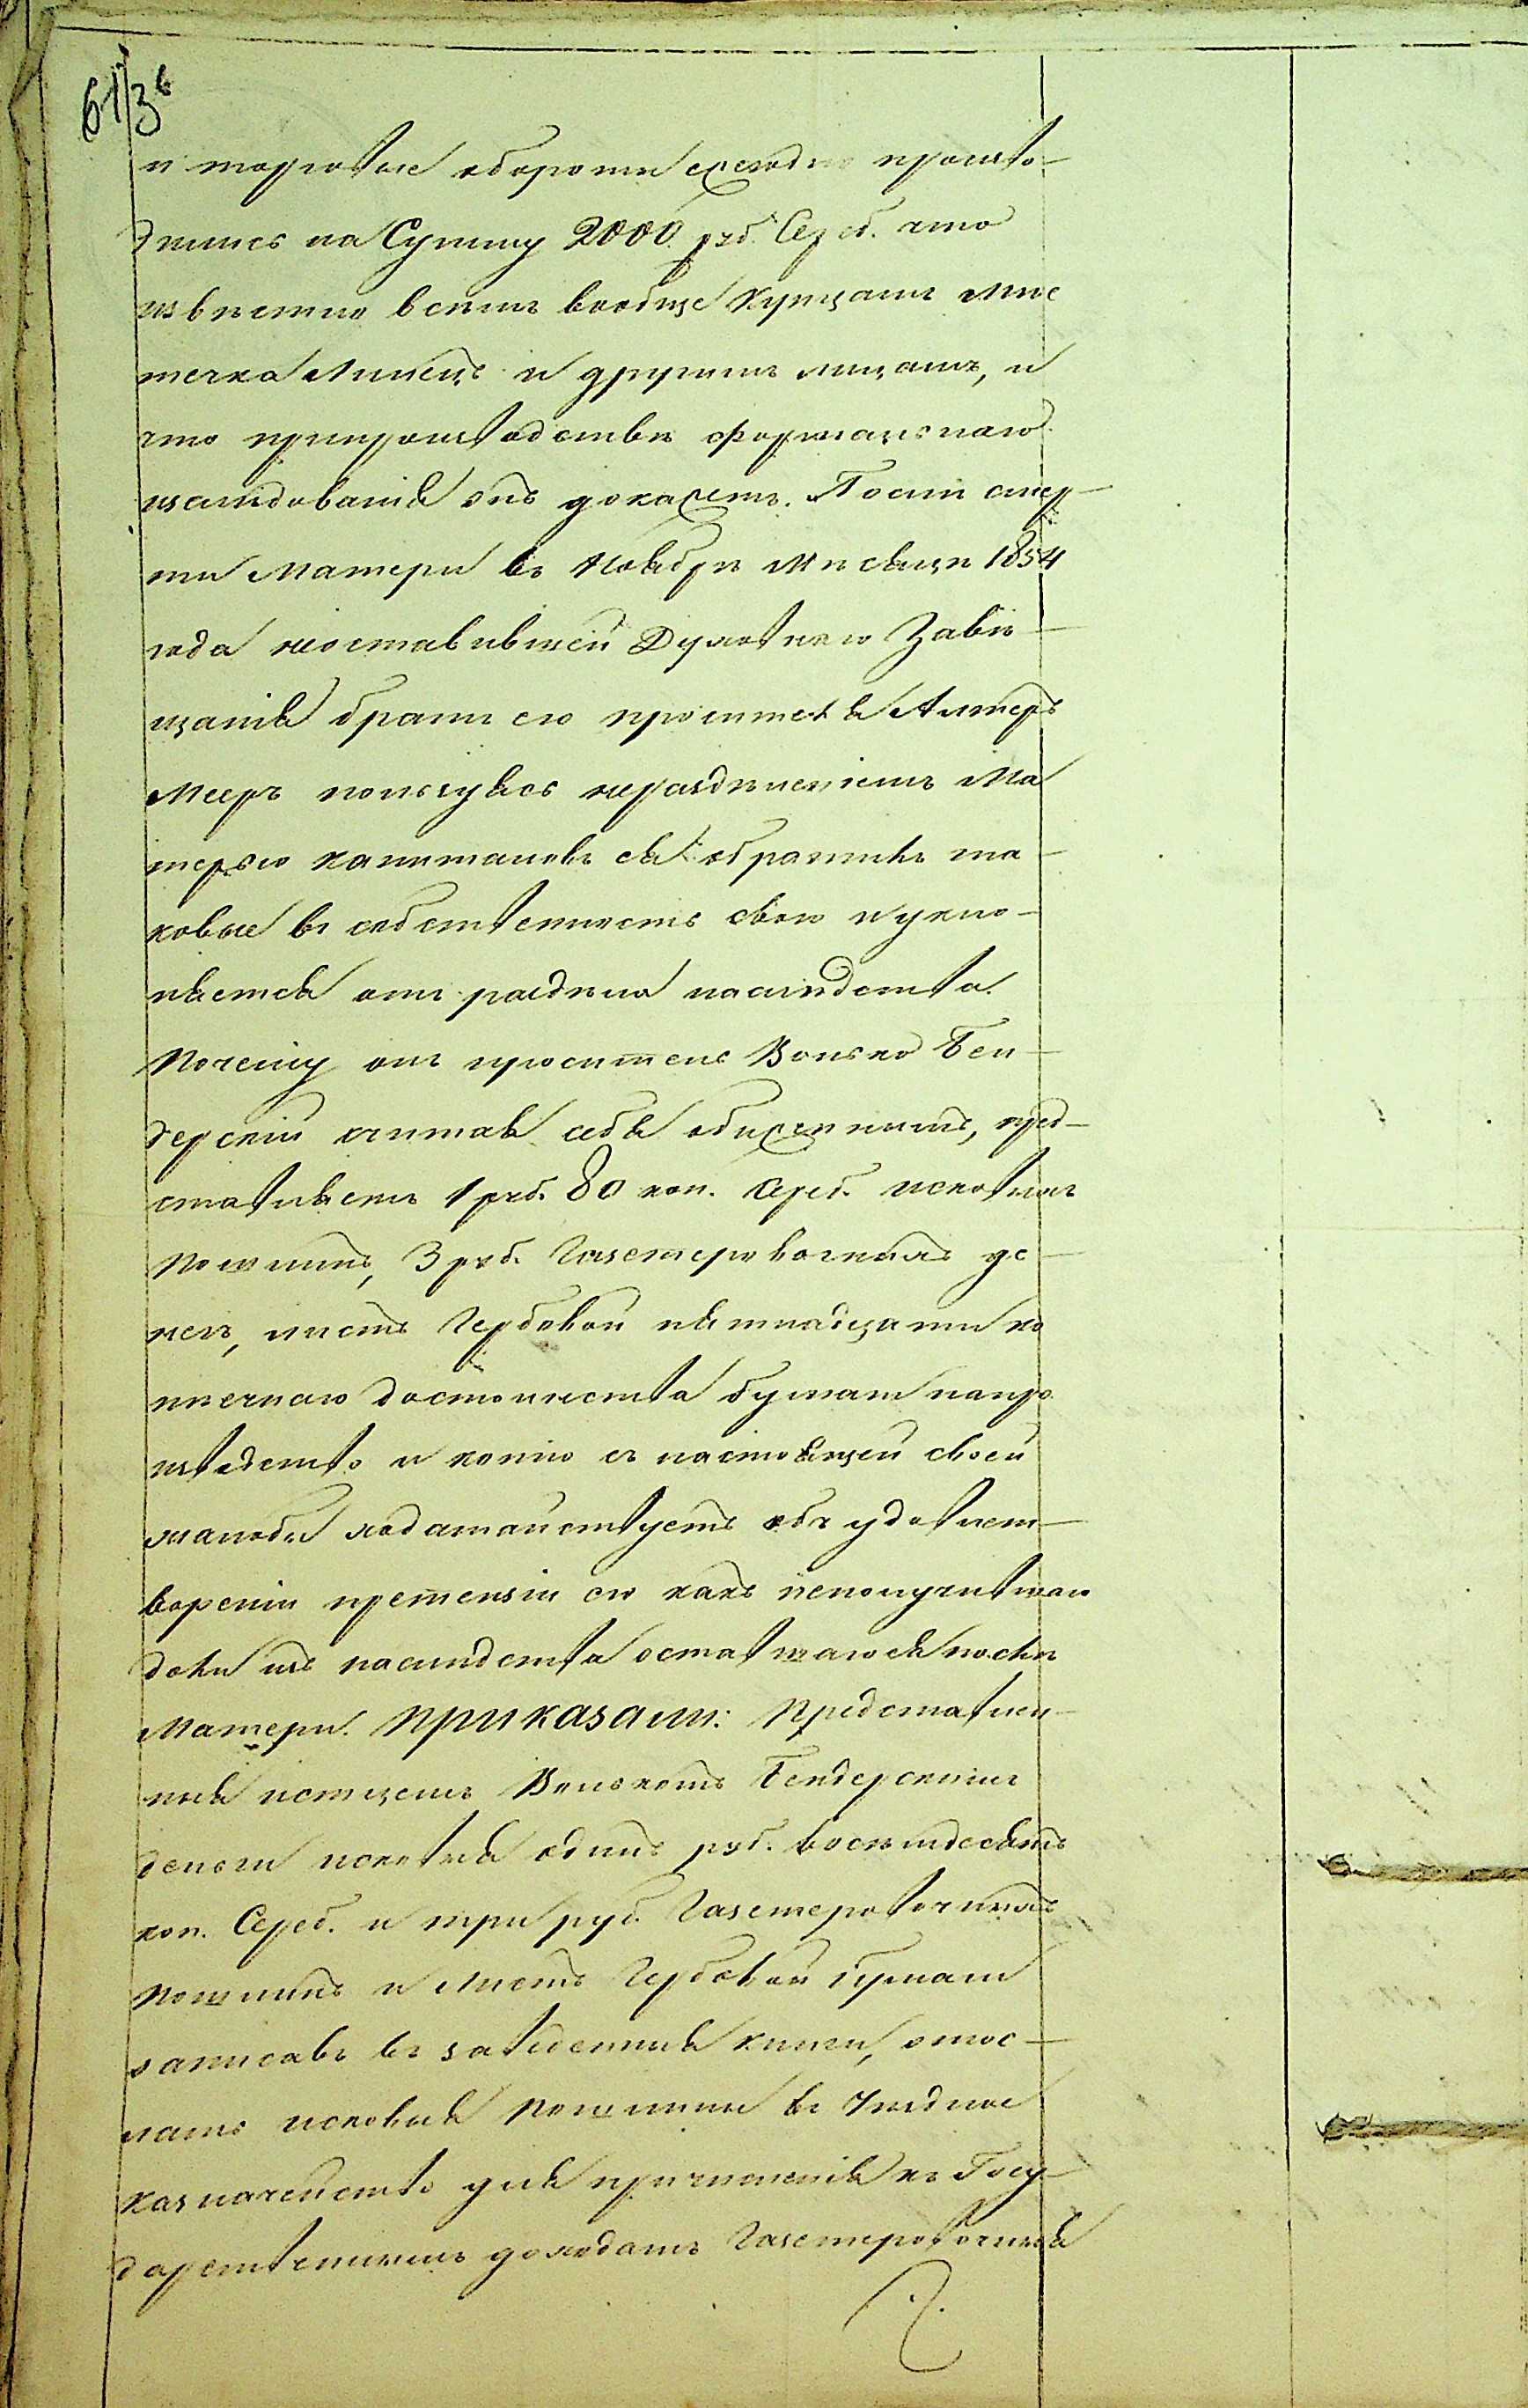 61/36
и торговые обороты ежегодно произво-
дились на Сумму 2000 руб. Сереб. что
извѣстно всѣмъ вообще Купцамъ Мѣс
течка Липецъ и другимъ лицамъ, и
что при производствѣ формальнаго
изслѣдованія онъ докажетъ. Послѣ смер-
ти Матери въ Ноябрѣ Мѣсяцѣ 1854
года неоставившей Духовнаго Завѣ-
щанія братъ его просителя Алтеръ
Мееръ пользуясь нераздѣленіемъ Ма
терью капиталовъ ея обратилъ та-
ковые въ собственность свою и укло-
няется отъ раздѣла наслѣдства.
Почему онъ проситель Волько Бен-
дерскій считая себя обиженнымъ, пред-
ставляетъ 1 руб. 80 коп. Сереб. исковыхъ
Пошлинъ, 3 руб. Гаистеровочныхъ де-
негъ, листъ Гербовой пятнадцати ко
пѣечнаго достоинства бумаги на про
изводство и копію съ настоящей своей
жалобы ходатайствуетъ объ удовлет-
вореніи претензіи его какъ неполучившаго
доли изъ наслѣдства оставшагося послѣ
Матери. Приказали: Представлен-
ныя истцемъ Волькомъ Бендерскимъ
деньги исковыя одинъ руб. восемдесятъ
коп. Сереб. и три руб. Гаистеровочныхъ
Пошлинъ и Листъ Гербовой бумаги
записавъ въ заведенныя книги, отос-
лать исковыя Пошлины въ Уѣздное
Казначейство для причисленія къ Госу-
дарственнымъ доходамъ Гаистеровочныя